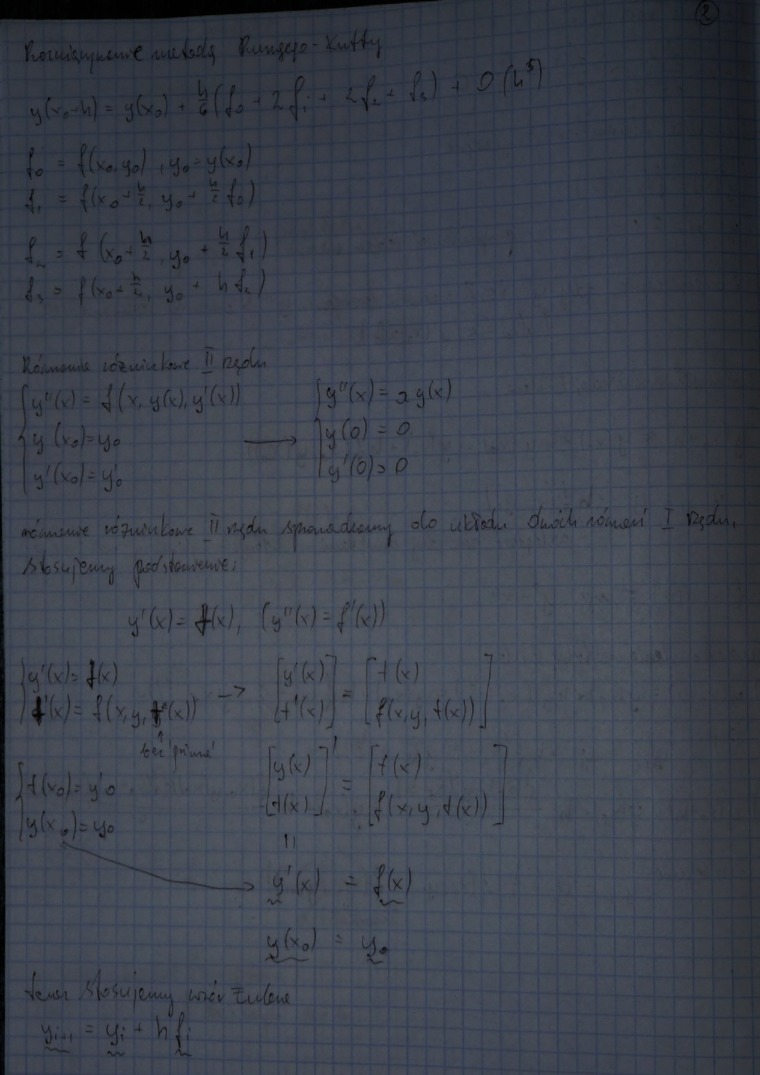 2
Rozwiązywanie metodą Rungego-Kutty
y(x₀+h) = y(x₀) + h/6 (f₀ + 2f₁ + 2f₂ + f₃) + O(h⁵)
f₀ = f(x₀, y₀), y₀ = y(x₀)
f₁ = f(x₀ + h/2, y₀ + h/2 f₀)
f₂ = f(x₀ + h/2, y₀ + h/2 f₁)
f₃ = f(x₀ + h/2, y₀ + h f₂)
Równanie różniczkowe II rzędu
{ y''(x) = f(x, y(x), y'(x))
{ y(x₀) = y₀
{ y'(x₀) = y'₀
→
{ y''(x) = λy(x)
{ y(0) = 0
{ y'(0) = 0
równanie różniczkowe II rzędu sprowadzamy do układu dwóch równań I rzędu.
Stosujemy podstawienie:
y'(x) = f(x), (y''(x) = f'(x))
{ y'(x) = f(x)
{ f'(x) = f(x, y, f(x))
bez 'prima'
→ [y'(x) t'(x)] = [t(x) f(x, y, t(x))]
{ t(x₀) = y'₀
{ y(x₀) = y₀
[y(x) t(x)]' = [t(x) f(x, y, t(x))]
y'(x) = f(x)
y(x₀) = y₀
teraz stosujemy wzór Eulera
yᵢ₊₁ = yᵢ + h fᵢ